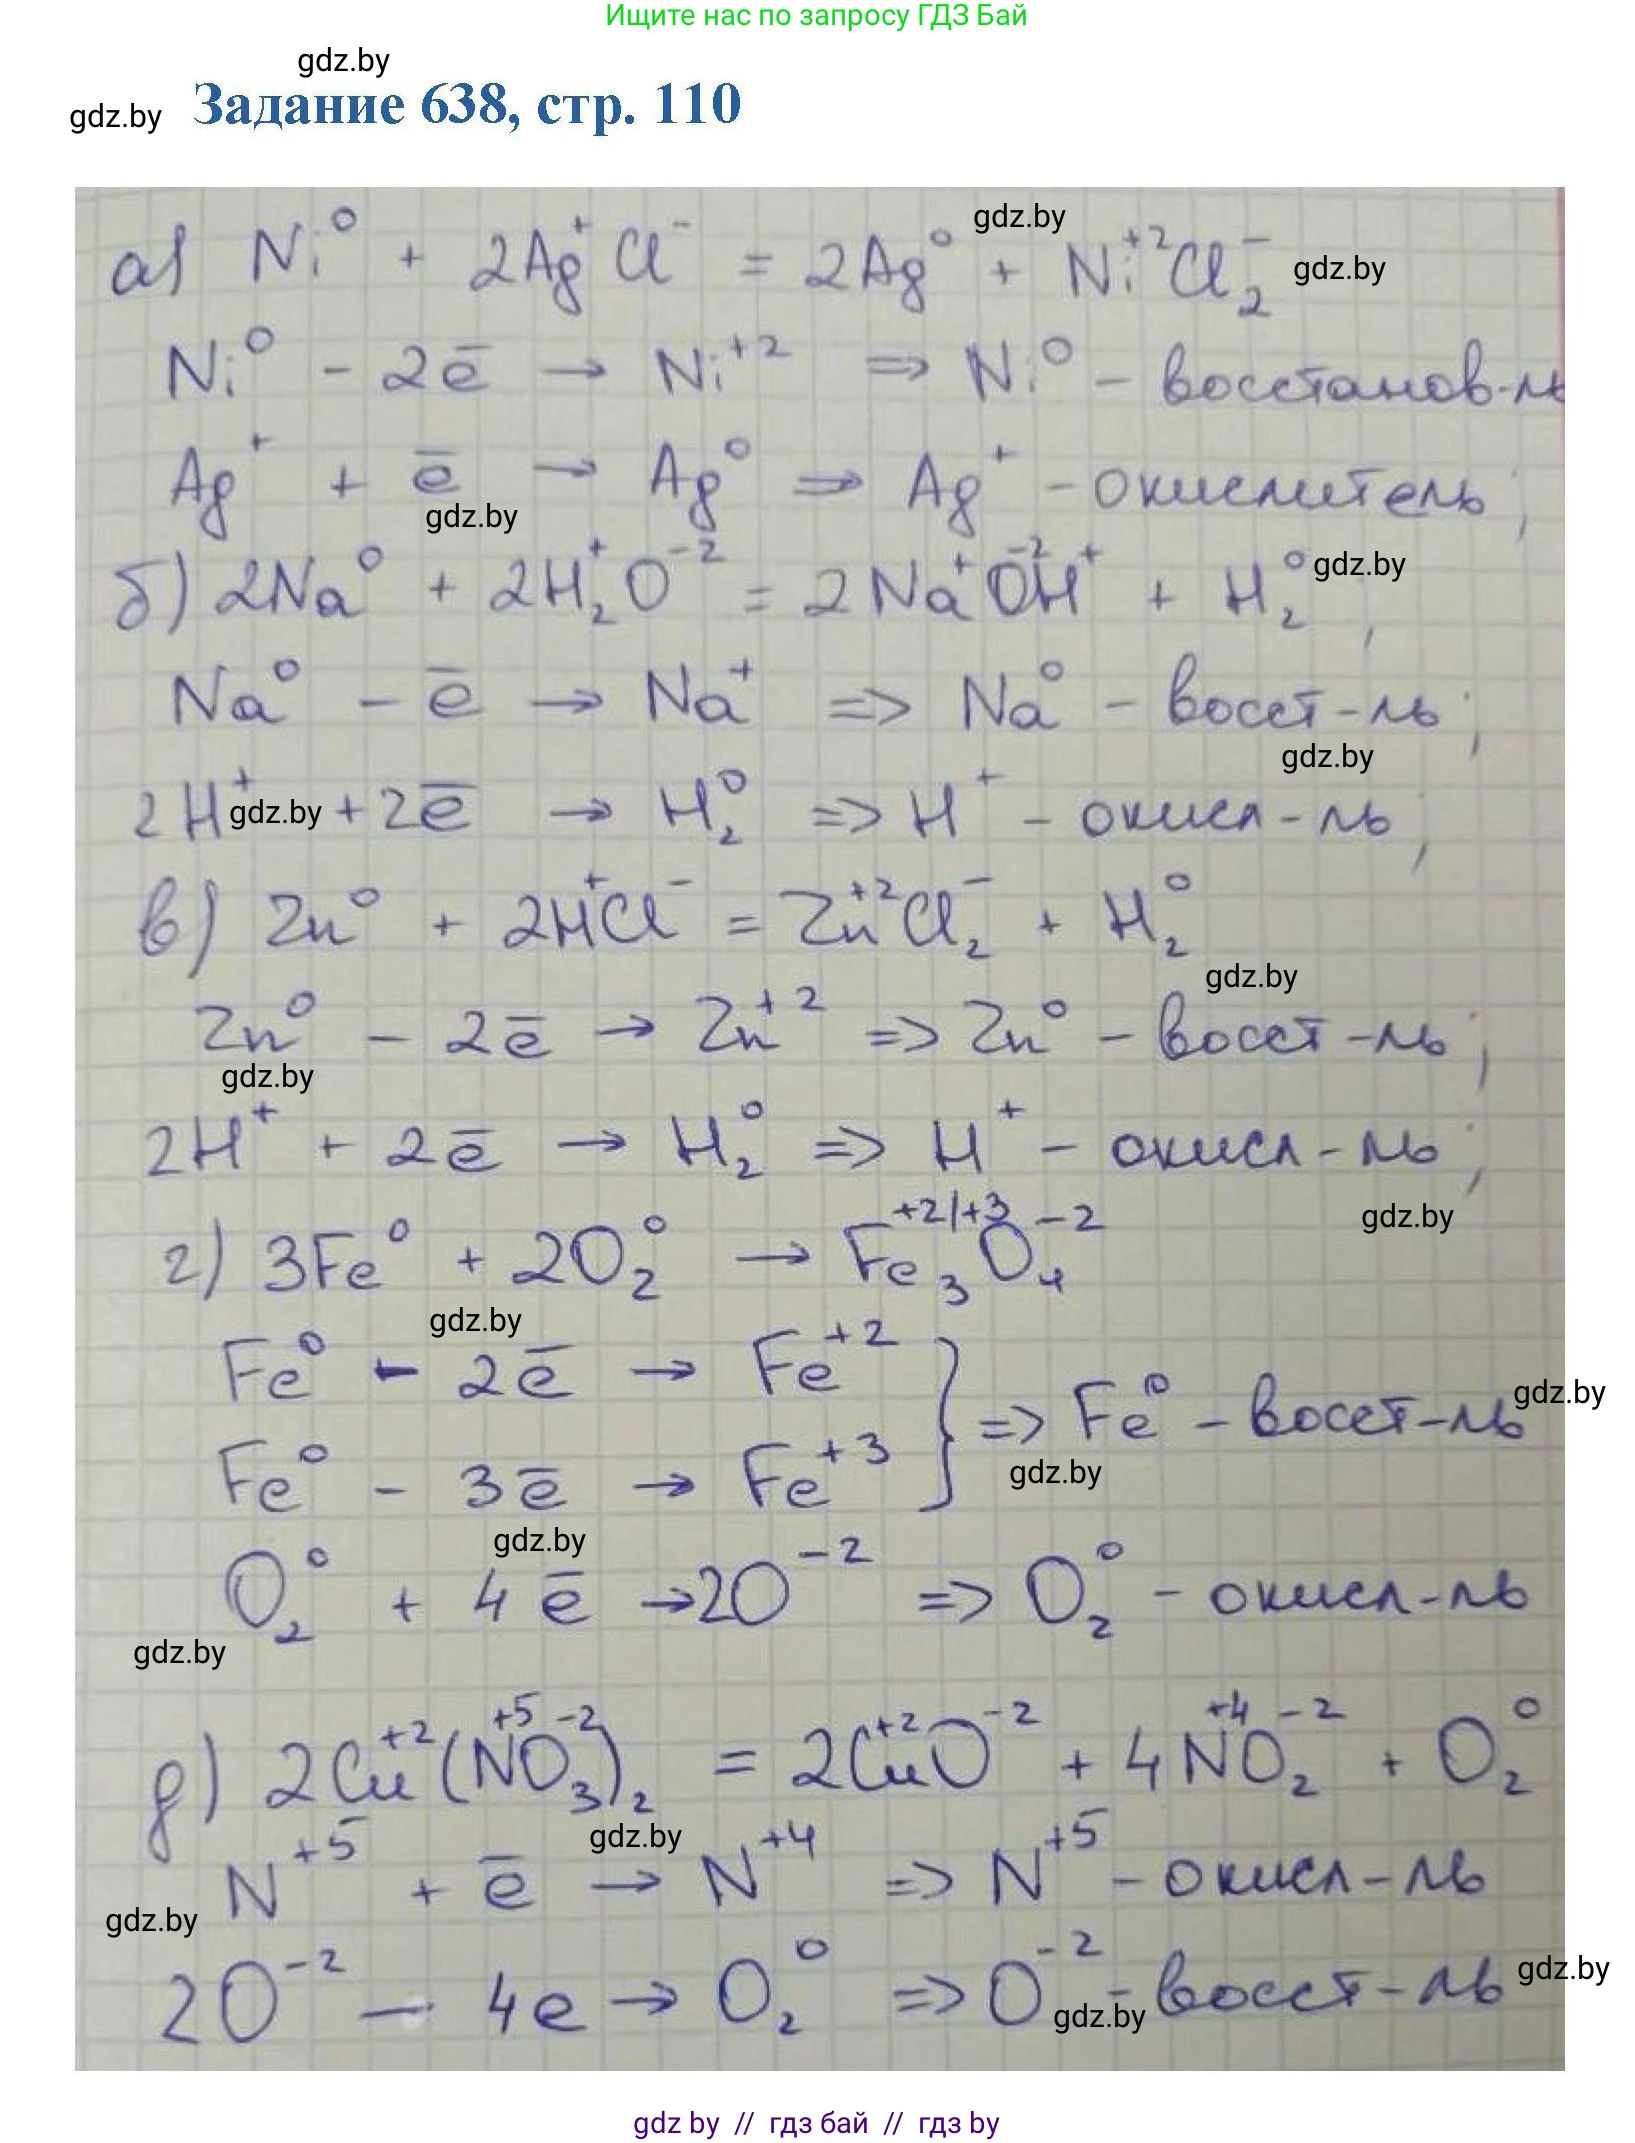 Ищите нас по запросу ГДЗ Бай
gdz.by
gdz.by Задание 638, стр. 110
gdz.by
а) Ni⁰ + 2Ag⁺Cl⁻ = 2Ag⁰ + Ni⁺²Cl₂⁻ gdz.by
Ni⁰ - 2e̅ → Ni⁺² => Ni⁰ - восстанов-ль
Ag⁺ + e̅ → Ag⁰ => Ag⁺ - окислитель;
gdz.by
б) 2Na⁰ + 2H₂⁺O⁻² = 2Na⁺O⁻²H⁺ + H₂⁰, gdz.by
Na⁰ - e̅ → Na⁺ => Na⁰ - восст-ль;
gdz.by
2H⁺ gdz.by + 2e̅ → H₂⁰ => H⁺ - окисл-ль;
в) Zn⁰ + 2H⁺Cl⁻ = Zn⁺²Cl₂⁻ + H₂⁰
gdz.by
Zn⁰ - 2e̅ → Zn⁺² => Zn⁰ - восст-ль;
gdz.by
2H⁺ + 2e̅ → H₂⁰ => H⁺ - окисл-ль;
gdz.by
г) 3Fe⁰ + 2O₂⁰ → Fe₃⁺²|⁺³O₄⁻²
gdz.by
Fe⁰ - 2e̅ → Fe⁺²
} => Fe⁰ - восст-ль gdz.by
gdz.by
Fe⁰ - 3e̅ → Fe⁺³
gdz.by
O₂⁰ + 4e̅ → 2O⁻² => O₂⁰ - окисл-ль
gdz.by
д) 2Cu⁺²(N⁺⁵O₃⁻²)₂ = 2Cu⁺²O⁻² + 4N⁺⁴O₂⁻² + O₂⁰
gdz.by
N⁺⁵ + e̅ → N⁺⁴ => N⁺⁵ - окисл-ль
gdz.by
2O⁻² - 4e → O₂⁰ => O⁻² - восст-ль gdz.by
gdz.by
gdz by // гдз бай // гдз by